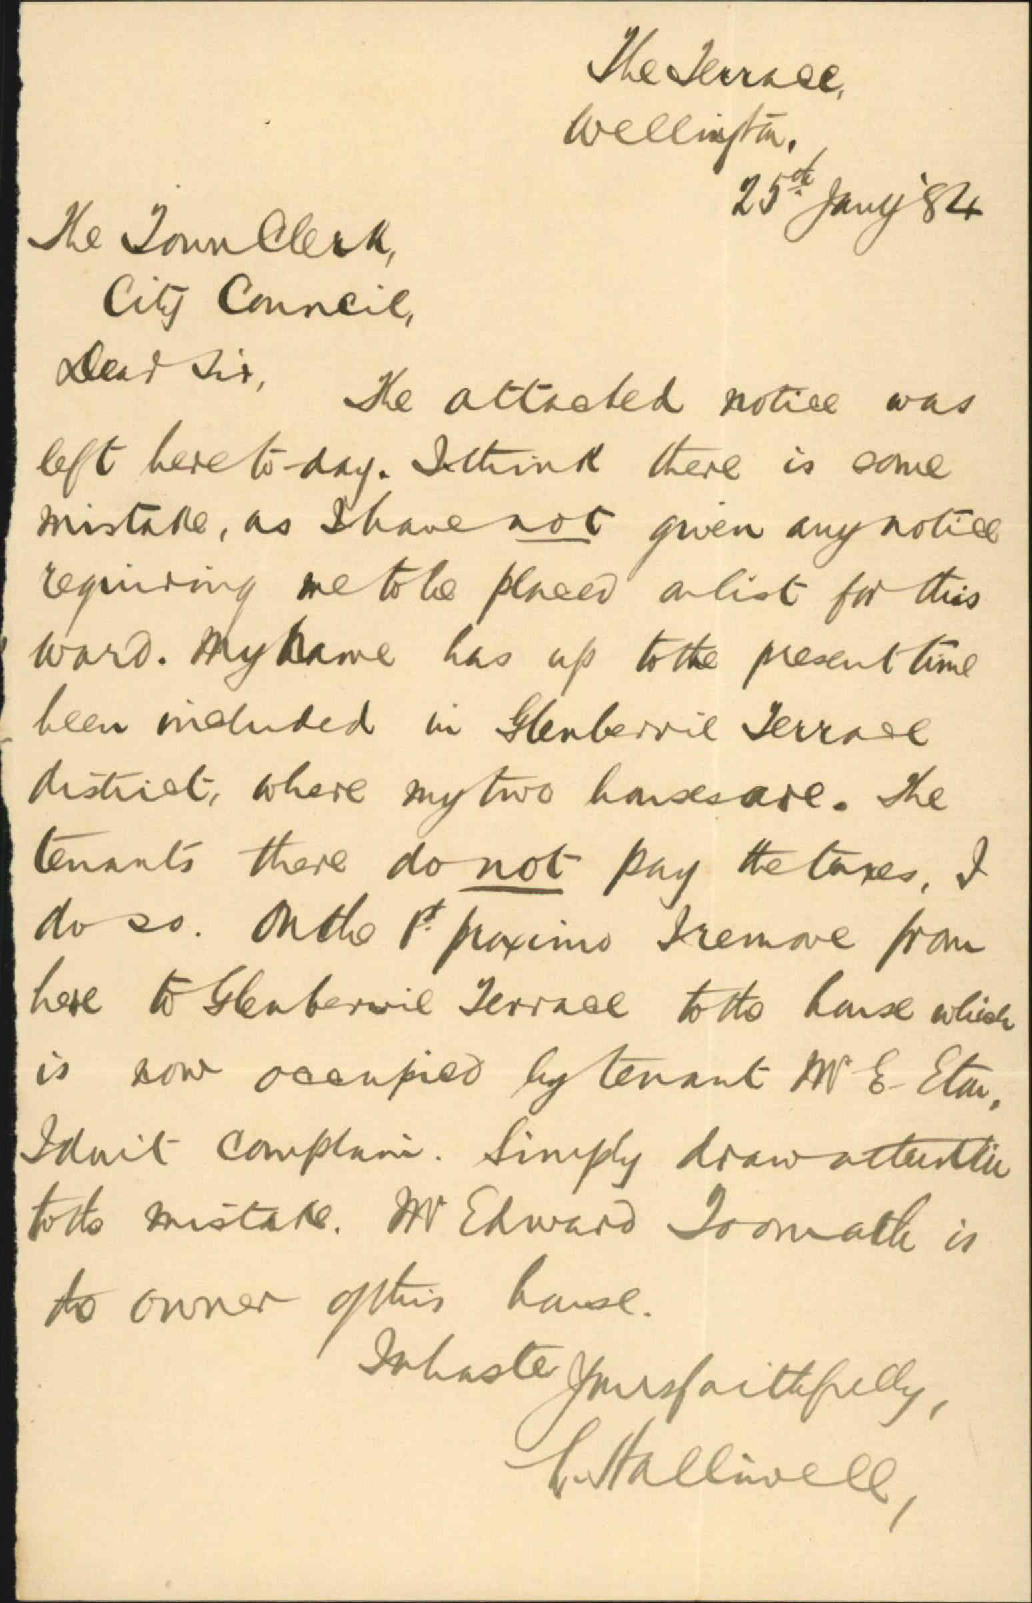 The Terrace,
Wellington.
25th Jany '84
The Town Clerk,
City Council,
Dear Sir,
The attached notice was
left here to-day. I think there is some
mistake, as I have not given any notice
requiring me to be placed on list for this
ward. My name has up to the present time
been included in Glenbervie Terrace
district, where my two houses are. The
tenants there do not pay the taxes, I
do so. On the 1st proximo I remove from
here to Glenbervie Terrace to the house which
is now occupied by tenant Mr E
I don't complain. Simply draw attention
to the mistake. Mr Edward Toomath is
the owner of this house.
In haste Yours faithfully,
Halliwell,